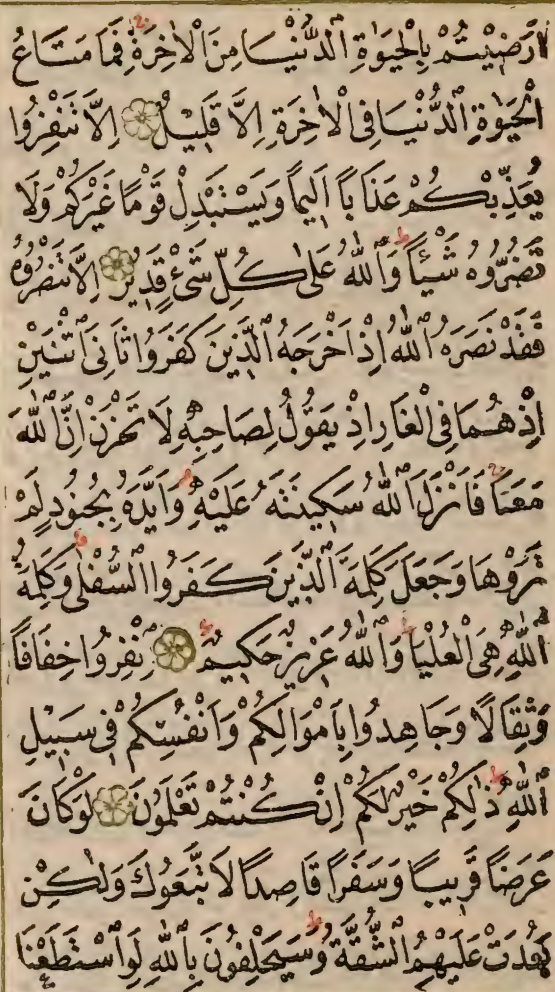 اَرَضِيتُمْ بِالْحَيٰوةِ الدُّنْيَا مِنَ الْاٰخِرَةِ فَمَا مَتَاعُ
الْحَيٰوةِ الدُّنْيَا فِي الْاٰخِرَةِ اِلَّا قَلِيلٌ اِلَّا تَنْفِرُوا
يُعَذِّبْكُمْ عَذَابًا اَلِيمًا وَيَسْتَبْدِلْ قَوْمًا غَيْرَكُمْ وَلَا
تَضُرُّوهُ شَيْئًا وَاللّٰهُ عَلٰى كُلِّ شَيْءٍ قَدِيرٌ اِلَّا تَنْصُرُوهُ
فَقَدْ نَصَرَهُ اللّٰهُ اِذْ اَخْرَجَهُ الَّذِينَ كَفَرُوا ثَانِيَ اثْنَيْنِ
اِذْ هُمَا فِي الْغَارِ اِذْ يَقُولُ لِصَاحِبِهِ لَا تَحْزَنْ اِنَّ اللّٰهَ
مَعَنَا فَاَنْزَلَ اللّٰهُ سَكِينَتَهُ عَلَيْهِ وَاَيَّدَهُ بِجُنُودٍ لَمْ
تَرَوْهَا وَجَعَلَ كَلِمَةَ الَّذِينَ كَفَرُوا السُّفْلٰى وَكَلِمَةُ
اللّٰهِ هِيَ الْعُلْيَا وَاللّٰهُ عَزِيزٌ حَكِيمٌ اِنْفِرُوا خِفَافًا
وَثِقَالًا وَجَاهِدُوا بِاَمْوَالِكُمْ وَاَنْفُسِكُمْ فِي سَبِيلِ
اللّٰهِ ذٰلِكُمْ خَيْرٌ لَكُمْ اِنْ كُنْتُمْ تَعْلَمُونَ لَوْ كَانَ
عَرَضًا قَرِيبًا وَسَفَرًا قَاصِدًا لَاتَّبَعُوكَ وَلٰكِنْ
بَعُدَتْ عَلَيْهِمُ الشُّقَّةُ وَسَيَحْلِفُونَ بِاللّٰهِ لَوِ اسْتَطَعْنَا